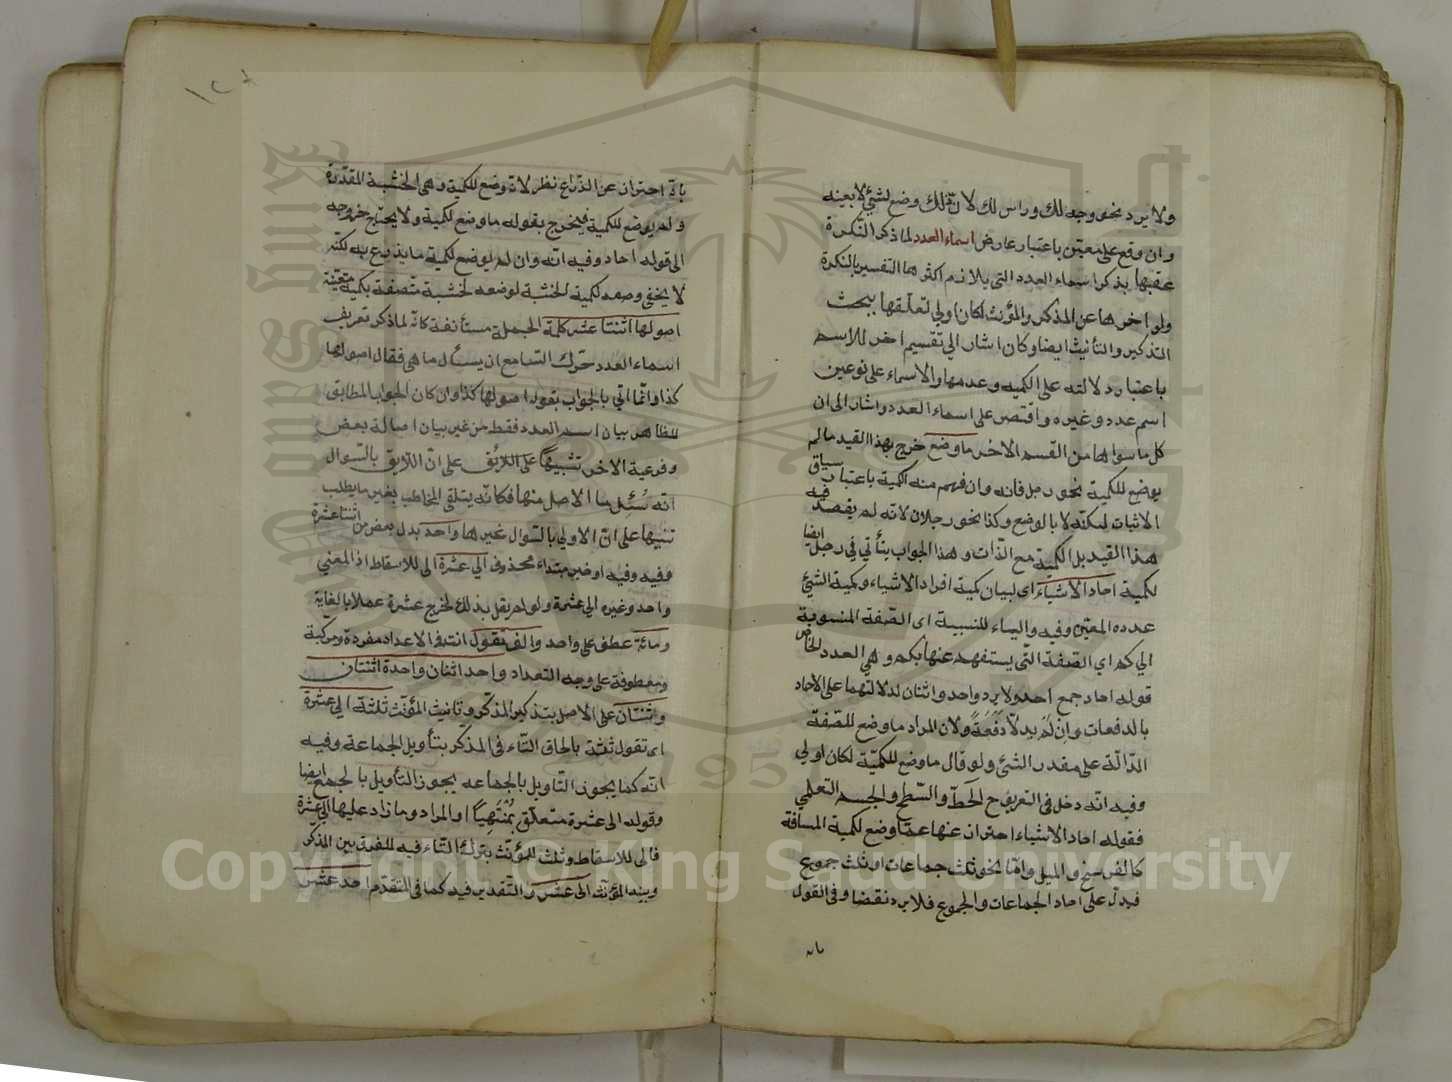 ولا يرد نحو وجه لك وراس لك لان ذلك وضع لشئ لا بعينه
وان وقع على معين باعتبار عارض اسماء العدد لما ذكر النكرة
عقبها بذكر اسماء العدد التى يلازم اكثرها التفسير بالنكرة
ولو اخرها عن المذكر والمؤنث لكان اولى تعلقها ببحث
التذكير والتأنيث ايضا وكان اشار الى تقسيم اخر للاسم
باعتبار دلالته على الكميه وعدمها والاسماء على نوعين
اسم عدد وغيره واقتصر على اسماء العدد واشار الى ان
كل ما سواها من القسم الاخر ما وضع خرج بهذا القيد ما لم
يوضع للكمية نحو رجل فانه وان فهم منه الكمية باعتبار سياق
الاثبات لكنه لا بالوضع وكذا نحو رجلان لانه لم يقصد فيه
هذا القيد بل الكمية مع الذات وهذا الجواب يتأتى فى رجل ايضا
لكمية احاد الاشياء اى لبيان كمية افراد الاشياء وكمية الشئ
عدده المعين وفيه والياء للنسبية اى الصفة المنسوبة
الى كم اي الصفة التى يستفهم عنها بكم وهى العدد الخاص
قوله احاد جمع احد ولا يرد واحد واثنان لدلالتهما على الاحاد
بالدفعات وان لم يدلا دفعة ولان المراد ما وضع للصفة
الدالة على مقدر الشئ ولو قال ما وضع للكمية لكان اولى
وفيه انه دخل فى التعريف ح الخط والسطح والجسم التعلمى
فقوله احاد الاشياء احتراز عنها عما وضع لكمية المسافة
كالفرسخ والميل واما نحو ثلث جماعات او ثلث جموع
فيدل على احاد الجماعات والجموع فلا يرد نقضا وفى القول
بانه
١٢٨
بانه احتراز عن الذراع نظر لانه وضع للكمية وهى الخشبة المقدرة
ولم يوضع للكمية فيخرج بقوله ما وضع لكمية ولا يحتاج خروجه
الى قوله احاد وفيه انه وان لم يوضع لكمية ما يذرع به لكنه
لا يخفى وضعه لكمية الخشبة لوضعه لخشبة متصفة بكمية معينة
اصولها اثنتا عشر كلمة الجملة مستأنفة كانه لما ذكر تعريف
اسماء العدد حرك السامع ان يسأل ما هى فقال اصولها
كذا وانما اتى بالجواب بقوله اصولها كذا وان كان الجواب المطابق
للظاهر بيان اسم العدد فقط من غير بيان اصالة بعض
وفرعية الاخر تنبيها على اللائق على ان اللائق بالسوال
انه سئل ما الاصل منها فكانه يتلقى المخاطب بغير ما يطلب
تنبيها على ان الاولى بالسوال غيرها واحد بدل بعض من اثنتا عشرة
وفيه وفيه او خبر مبتداء محذوف الى عشرة الى للاسقاط اذ المعنى
واحد وغيره الى عشرة ولو لم يقل بذلك لخرج عشرة عملا بالغاية
ومائة عطف على واحد والف تقول انت فى الاعداد مفردة ومركبة
ومعطوفة على وجه التعداد واحد اثنان واحدة اثنتان
وثنتان على الاصل بتذكير المذكر وتانيث المؤنث ثلثة الى عشرة
اى تقول ثلثة بالحاق التاء فى المذكر بتأويل الجماعة وفيه
انه كما يجوز التاويل بالجماعه يجوز التأويل بالجمع ايضا
وقوله الى عشرة متعلق بمنتهيا او المراد وما زاد عليها الى عشرة
فالى للاسقاط وثلث للمؤنث بترك التاء فيه للفرق بين المذكر
وبين المؤنث الى عشر والتقدير فيه كما فى المتقدم احد عشر
Copyright © King Saud University
1957